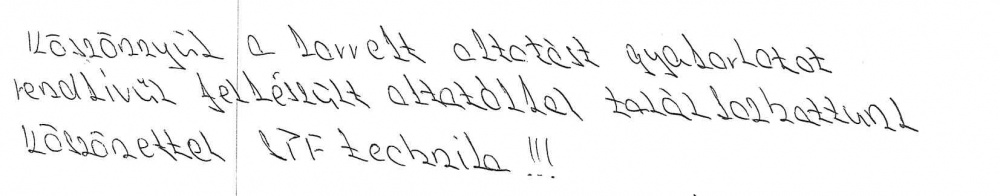 Köszönnyük a korrekt oktatást gyakorlatot
rendkivül felkészült oktatókkal találkozhattunk
köszönettel LPF technika !!!